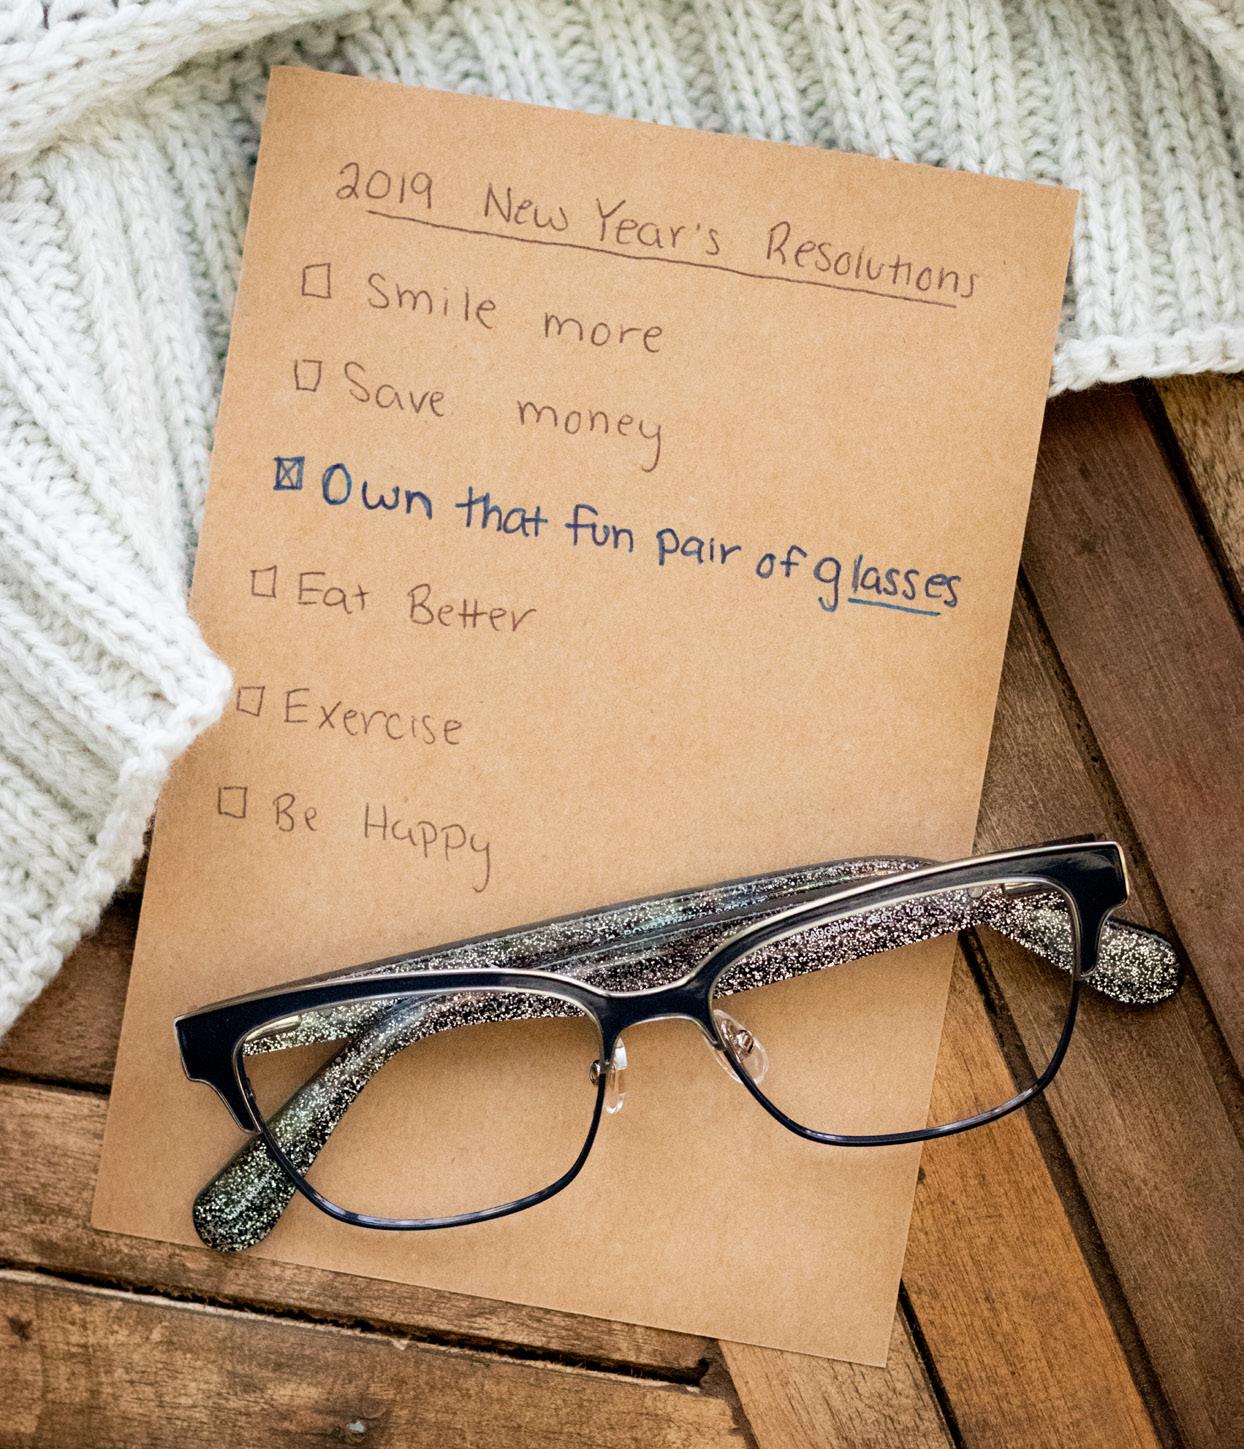 2019 New Year's Resolutions
Smile more
Save money
Own that fun pair of glasses
Eat Better
Exercise
Be Happy